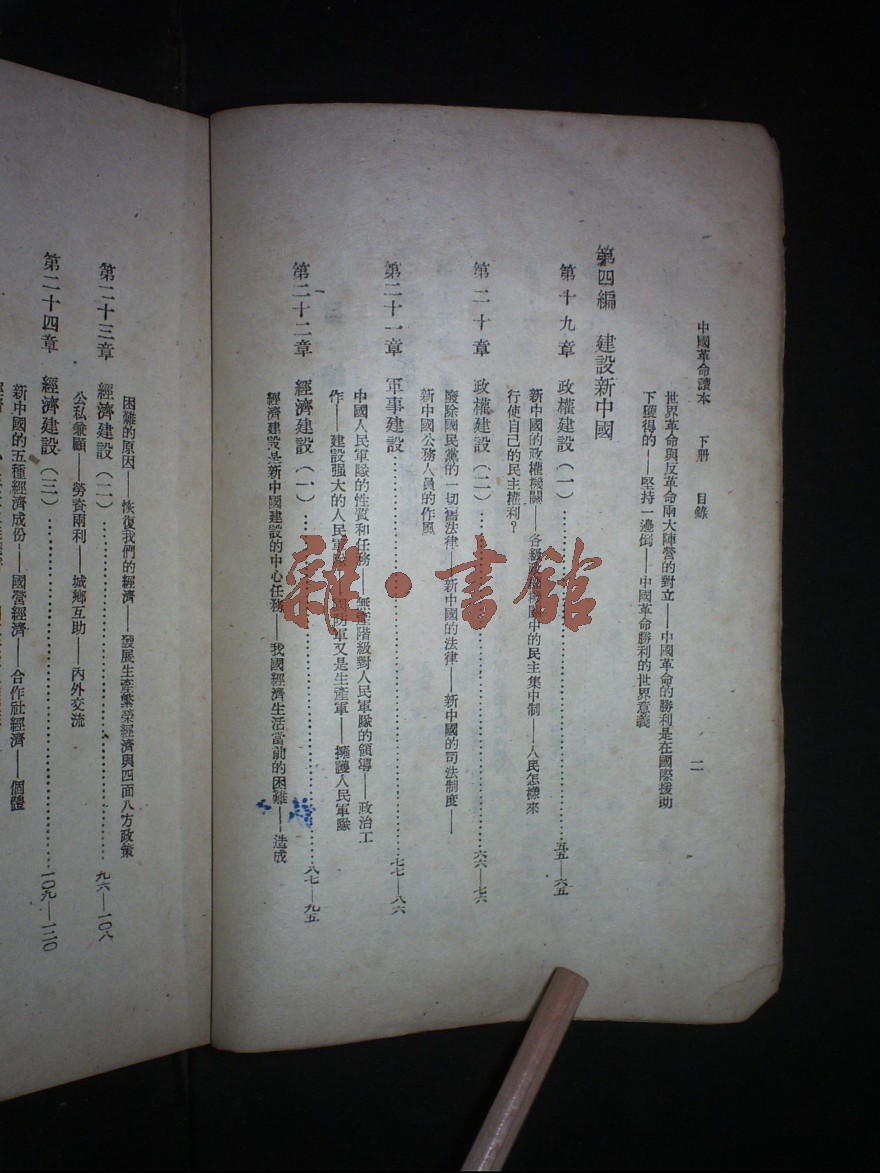 中國革命讀本 下册 目錄
二
世界革命與反革命兩大陣營的對立——中國革命的勝利是在國際援助
下獲得的——堅持一邊倒——中國革命勝利的世界意義
第四編 建設新中國
第十九章 政權建設(一)……五五—六五
新中國的政權機關——各級政權機關中的民主集中制——人民怎樣來
行使自己的民主權利?
第二十章 政權建設(二)……六六—七六
廢除國民黨的一切舊法律——新中國的法律——新中國的司法制度——
新中國公務人員的作風
第二十一章 軍事建設……七七—八六
中國人民軍隊的性質和任務——無產階級對人民軍隊的領導——政治工
作——建設强大的人民軍隊——國防軍又是生產軍——擁護人民軍隊
第二十二章 經濟建設(一)……八七—九五
經濟建設是新中國建設的中心任務——我國經濟生活當前的困難——造成
困難的原因——恢復我們的經濟——發展生產繁榮經濟與四面八方政策
第二十三章 經濟建設(二)……九六—一〇八
公私兼顧——勞資兩利——城鄉互助——內外交流
第二十四章 經濟建設(三)……一〇九—一二〇
新中國的五種經濟成份——國營經濟——合作社經濟——個體
雜·書館